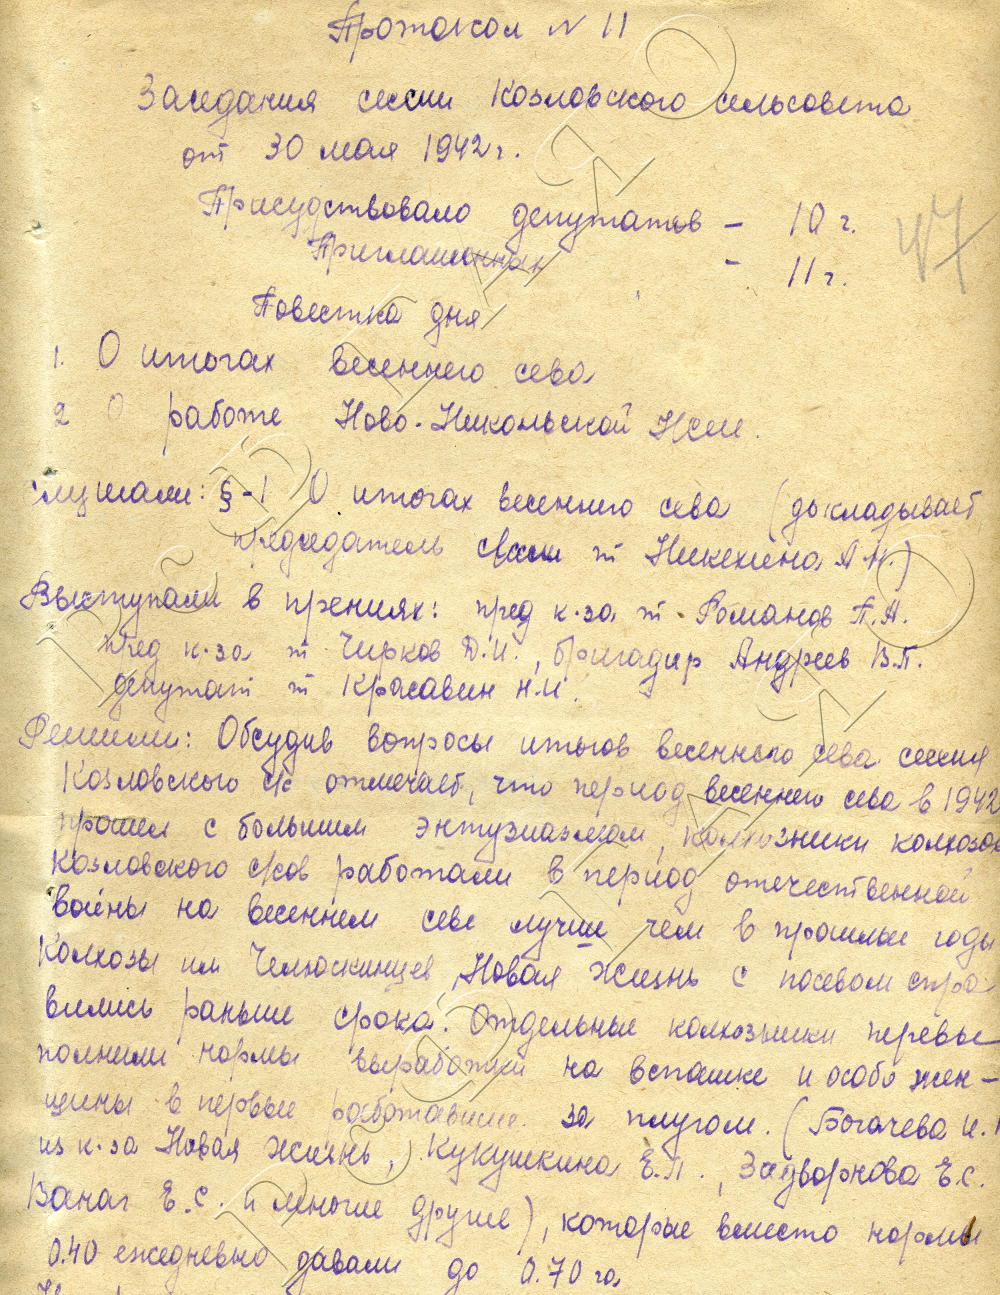 Протокол N 11
Заседания сессии Козловского сельсовета
от 30 мая 1942 г.
47
Присудствовало депутатов - 10 г.
Приглашонных - 11 г.
Повестка дня
1. О итогах весеннего сева
2 О работе Ново-Никольской Нсш.
слушали: §-1 О итогах весеннего сева (докладывает
председатель т Никехина А Н.)
Выступали в прениях: пред к-за т Романов П.А.
пред к-за т Чирков Д.И., бригадир Андреев В.П.
депутат т Красавин Н.И.
Решили: Обсудив вопросы итогов весеннего сева сессия
Козловского с/с отмечает, что период весеннего сева в 1942
прошел с большим энтузиазмом, колхозники колхозов
Козловского с/сов работали в период отечественной
войны на весеннем севе лучше чем в прошлые годы
Колхозы им Челюскинцев, Новая жизнь с посевом спра-
вились раньше срока. Отдельные колхозники перевы-
полнили нормы выработки на вспашке и особо жен-
щины в первые работавшие за плугом. (Богачева И.
из к-за Новая жизнь, Кукушкина Е.П., Задворнова Е.С.
Ванаг Е.С. и многие другие), которые вместо нормы
0.40 ежедневно давали до 0.70 га
РФ ГАЯО
РФ ГАЯО
РФ ГАЯО